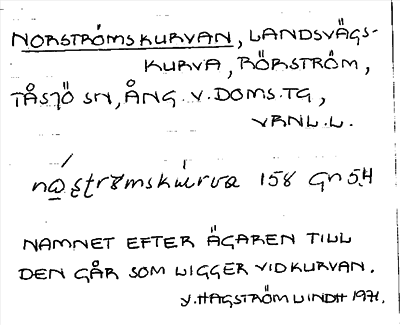 NORSTRÖMSKURVAN, LANDSVÄGS-
KURVA, RÖRSTRÖM,
TÅSJÖ SN, ÅNG. V. DOMS. TG,
VRNL. L.
158 Gn 54
NAMNET EFTER ÄGAREN TILL
DEN GÅR SOM LIGGER VID KURVAN.
V. HAGSTRÖM LINDH 1971.